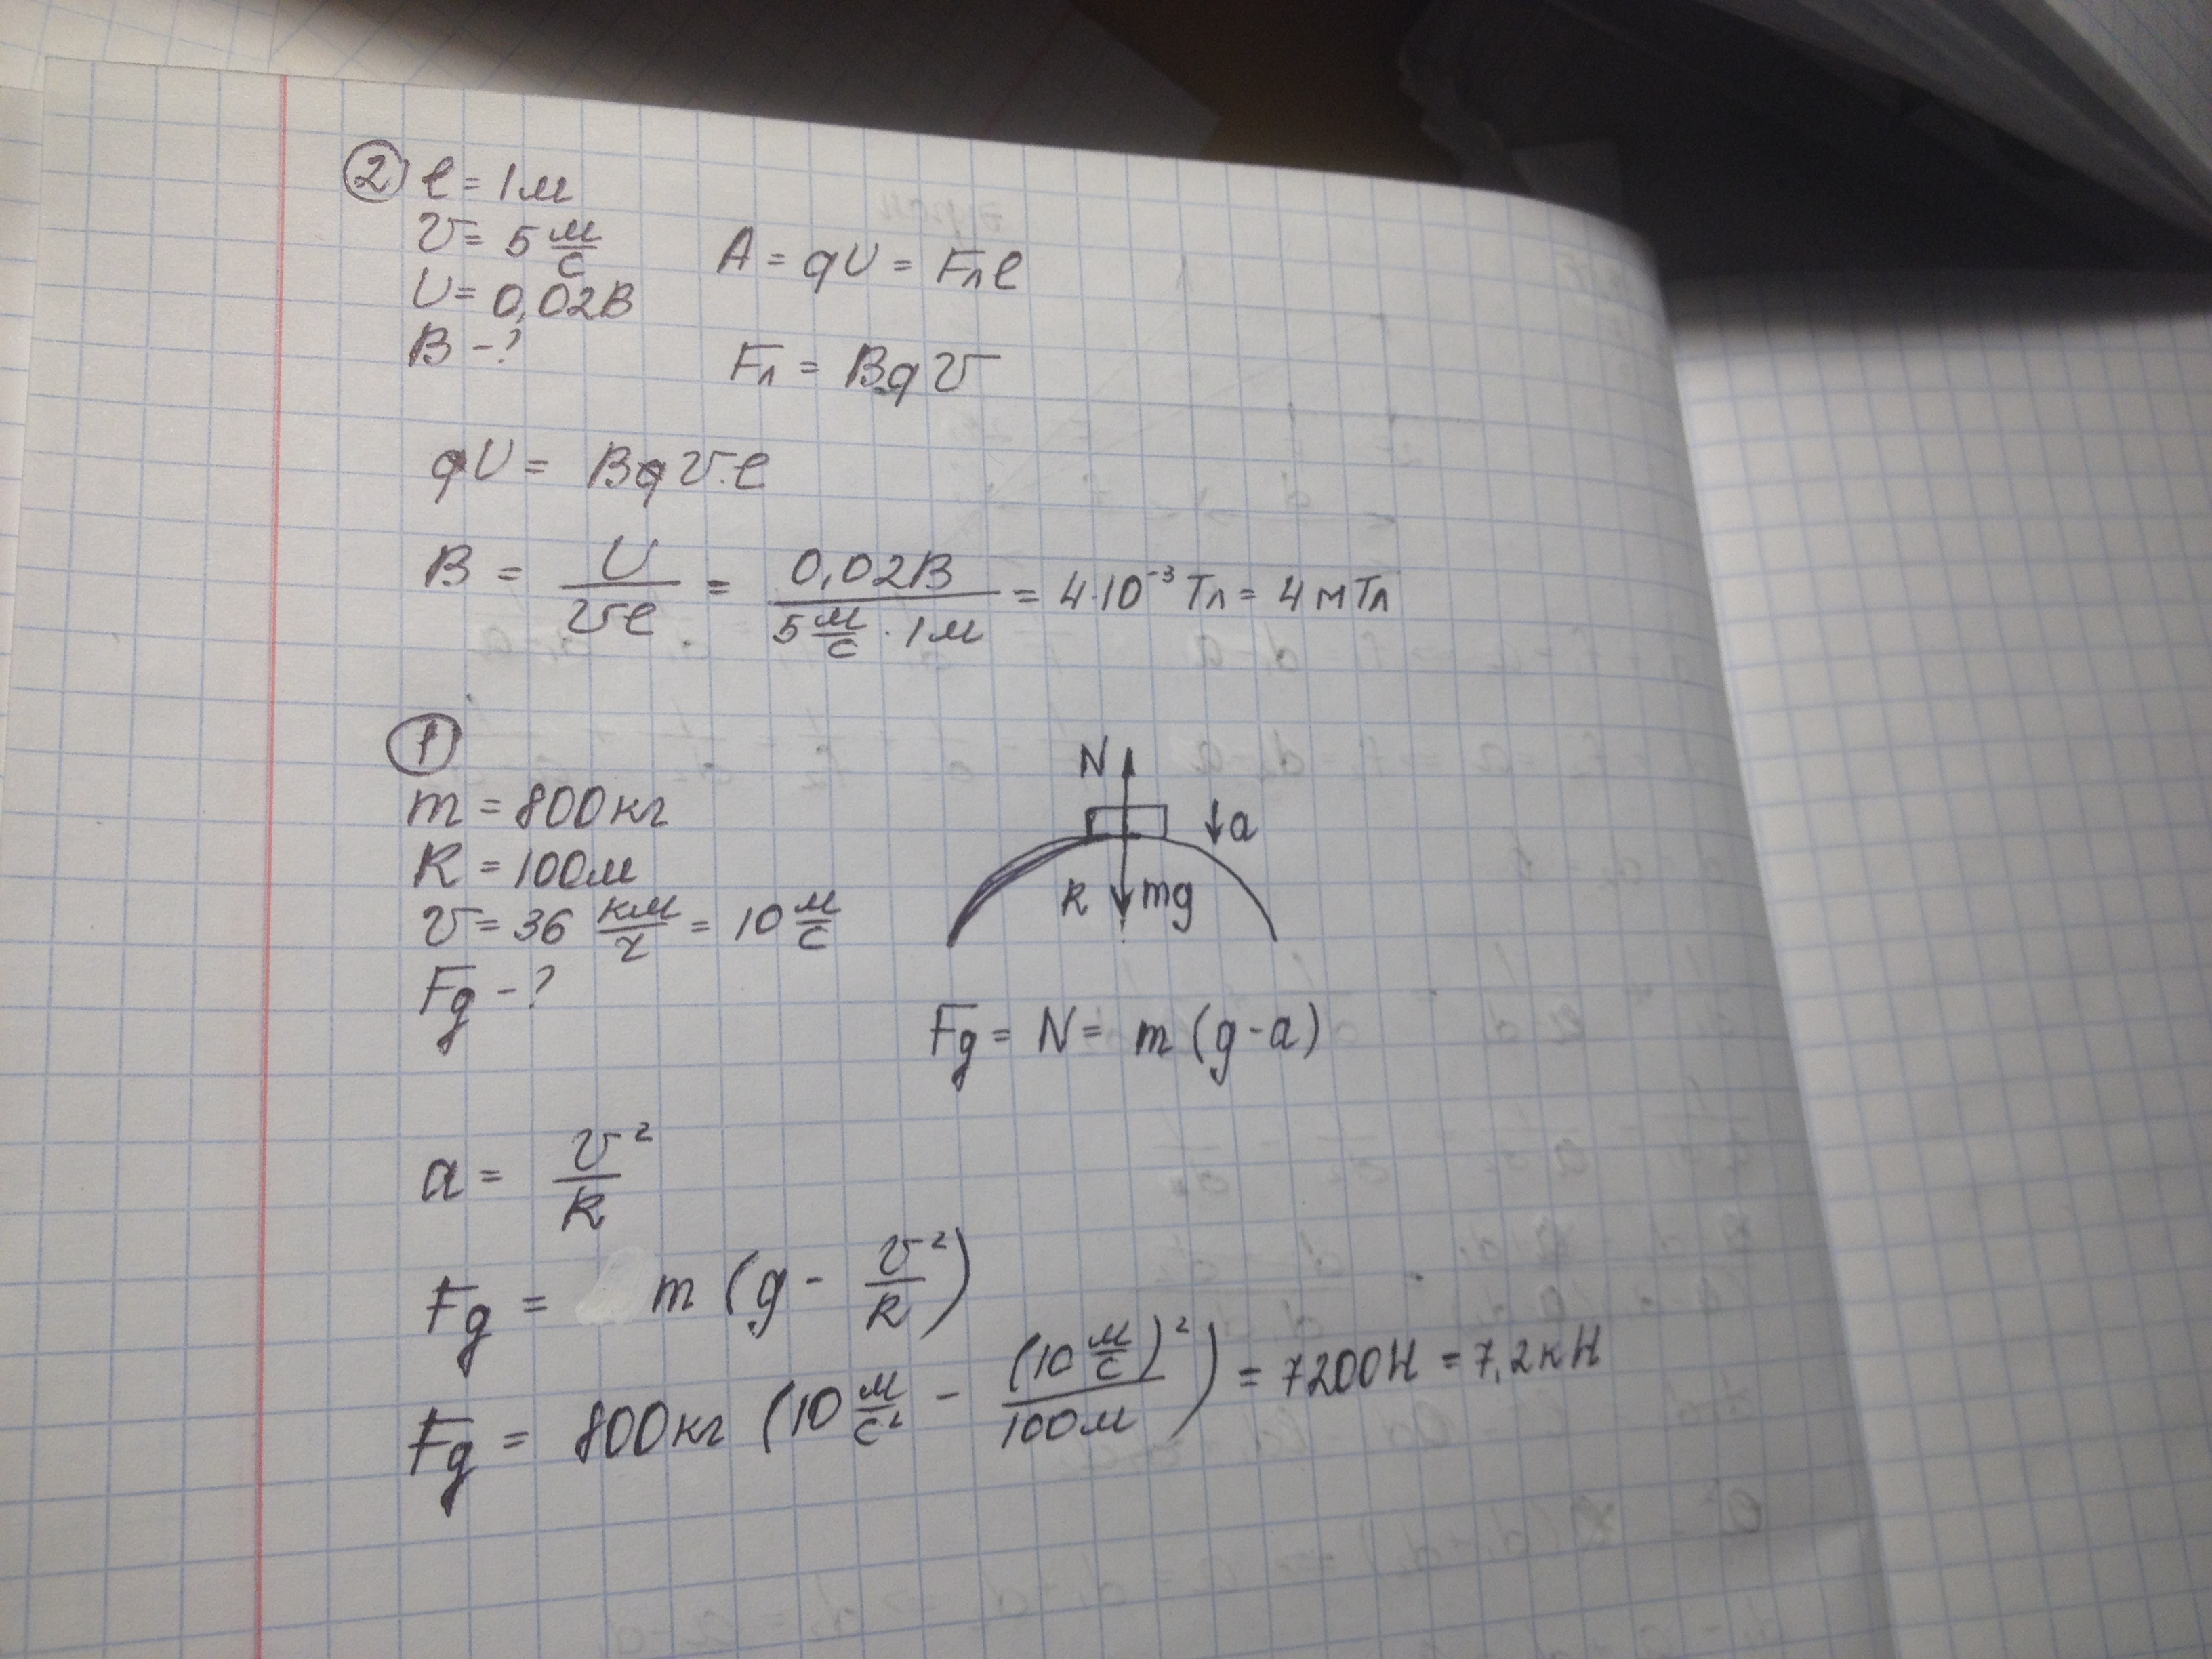 ② ℓ = 1м
υ = 5 м/с
U = 0,02В
В - ?
A = qU = Fл ℓ
Fл = Bqυ
qU = Bqυ·ℓ
B = U/υℓ = 0,02В/(5 м/с · 1м) = 4·10⁻³ Тл = 4 мТл
①
m = 800кг
R = 100м
υ = 36 км/ч = 10 м/с
Fg - ?
N
a
R
mg
Fg = N = m (g - a)
a = υ²/R
Fg = m (g - υ²/R)
Fg = 800кг (10 м/с² - (10 м/с)²/100м) = 7200Н = 7,2кН